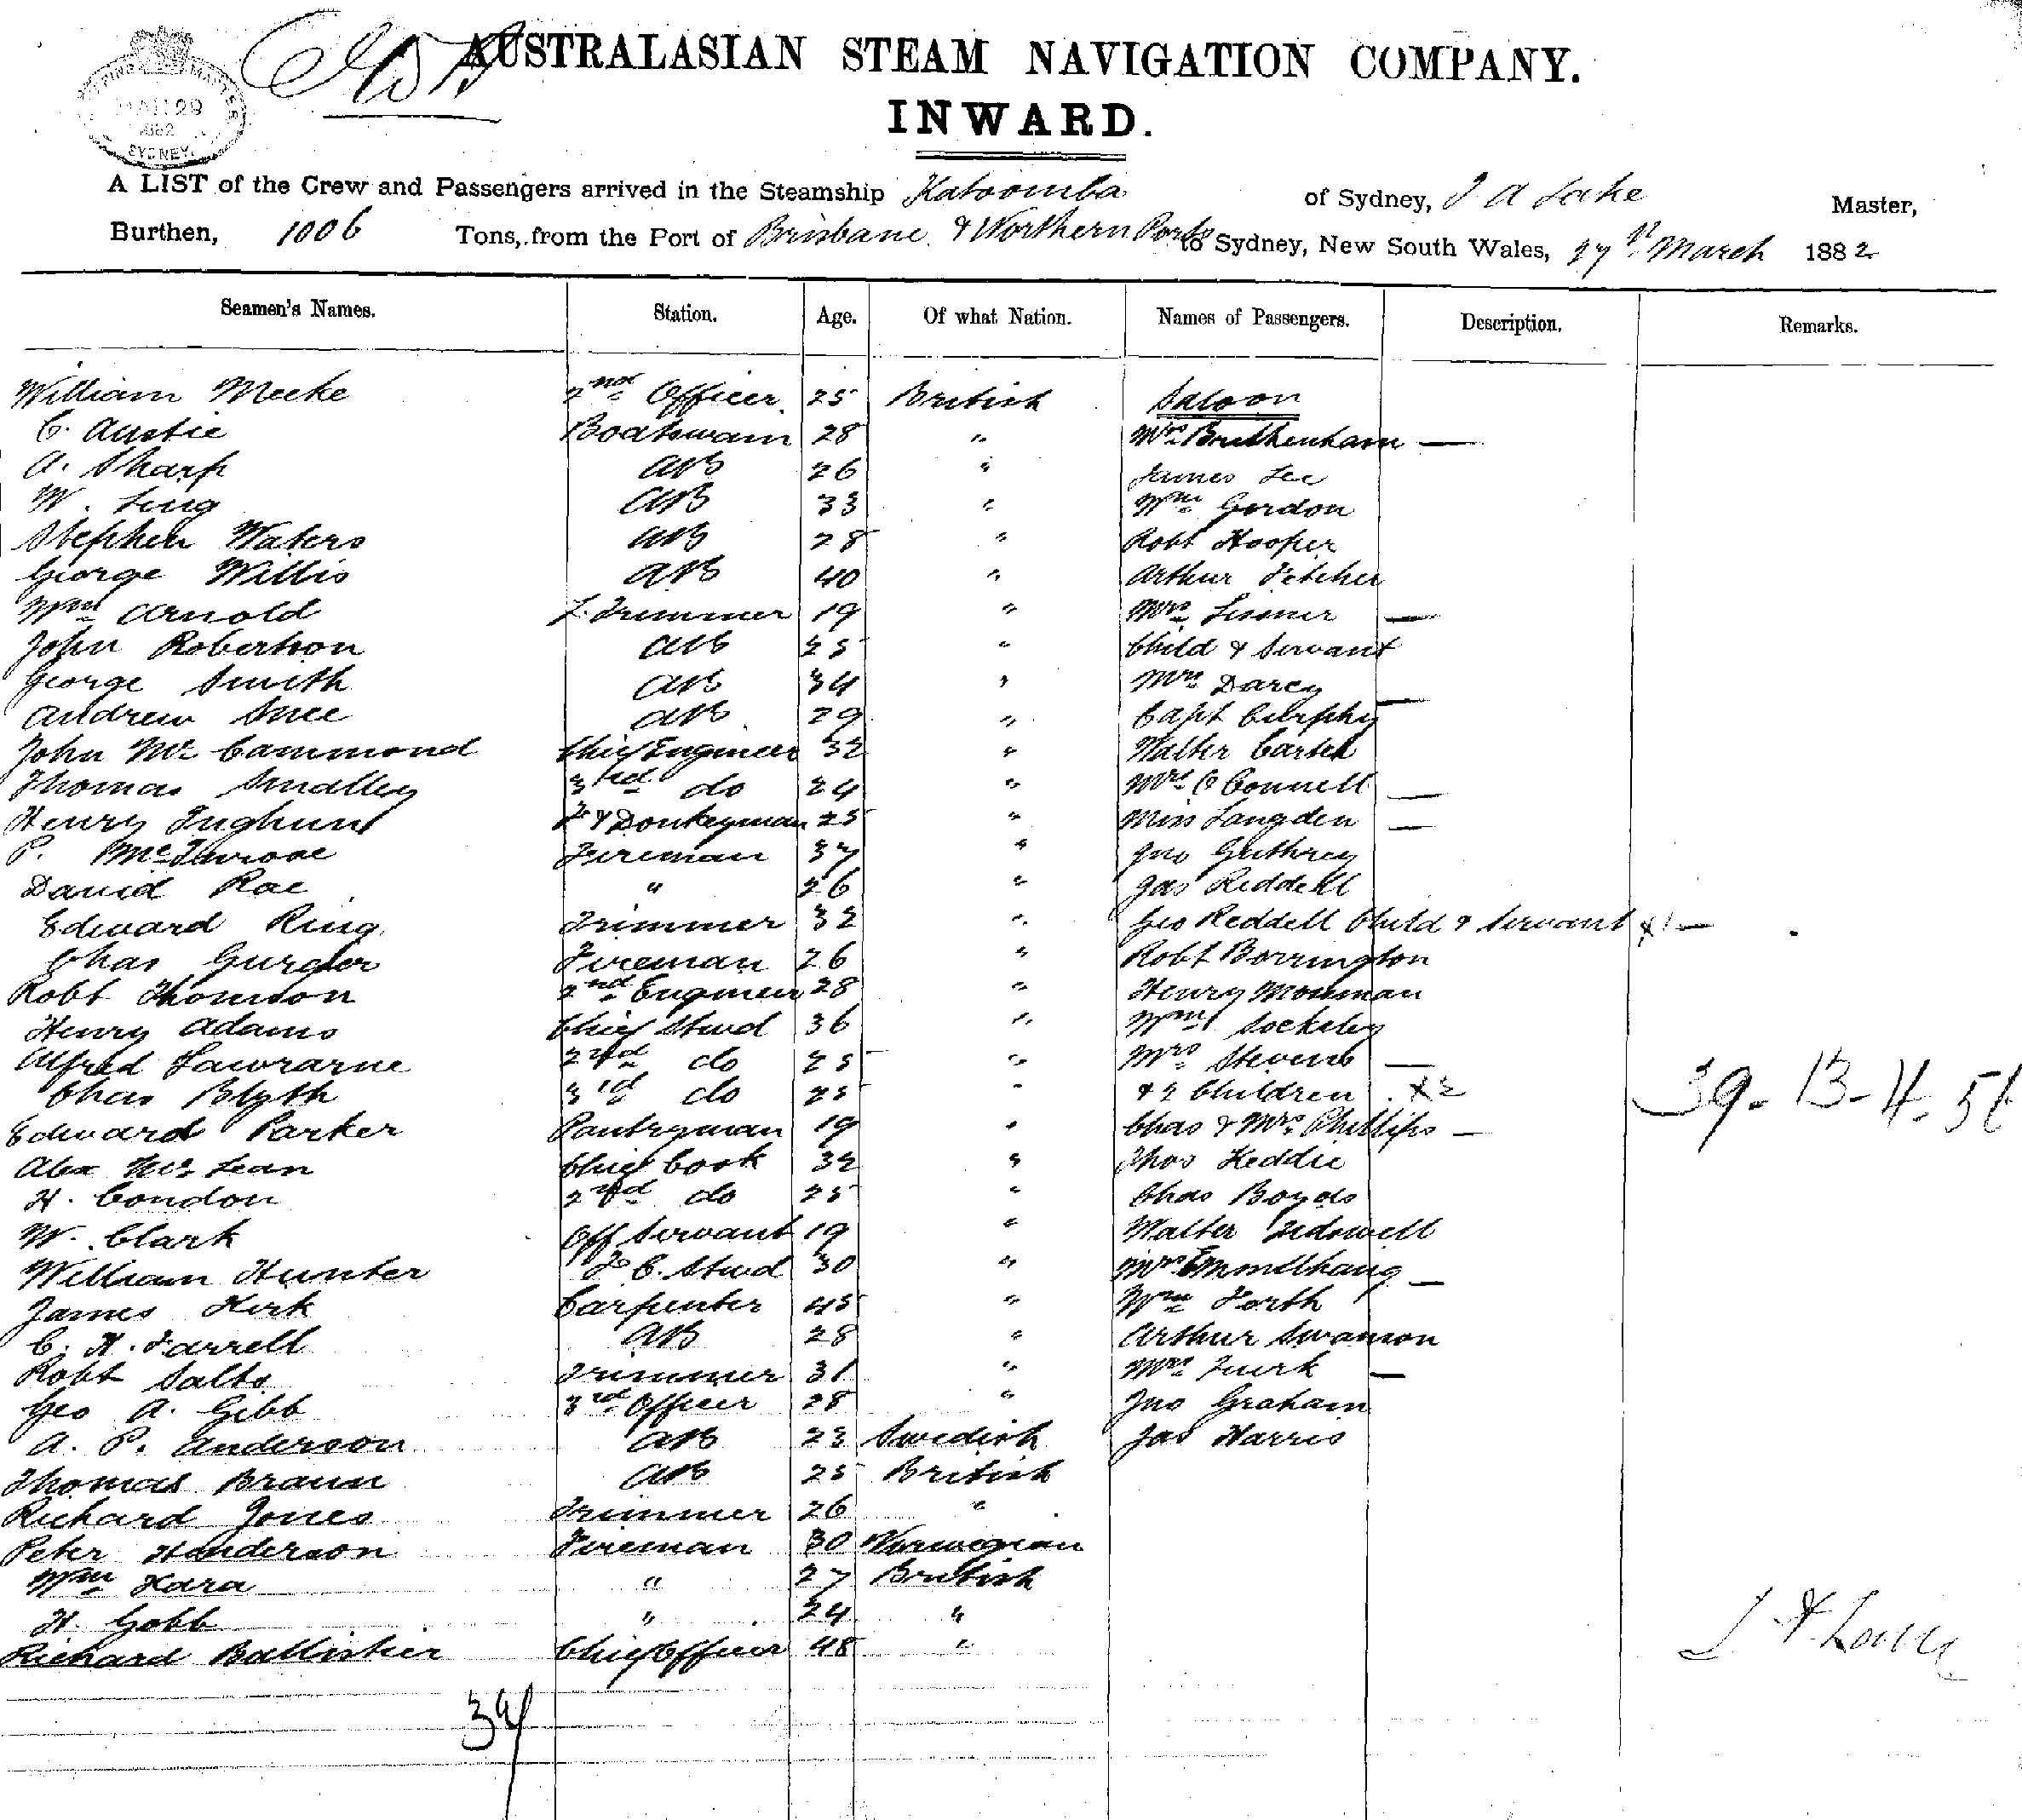 AUSTRALASIAN STEAM NAVIGATION COMPANY.
INWARD.
29
1882
SYDNEY.
A LIST of the Crew and Passengers arrived in the Steamship Katoomba of Sydney, J A Lake Master,
Burthen, 1006 Tons, from the Port of Brisbane & Northern Ports to Sydney, New South Wales, 27th March 1882
Seamen's Names. Station. Age. Of what Nation. Names of Passengers. Description. Remarks.
William Meeke 2nd Officer 25 British Saloon
C. Austie Boatswain 28 " Mrs —
A. Sharp AB 26 " James Lee
W. Ling AB 33 " Wm Gordon
Stephen Waters AB 28 " Robt Hooper
George Willis AB 40 " Arthur Fetcher
Wm Arnold Trimmer 19 " Mrs Lissner —
John Robertson AB 25 " Child & Servant
George Smith AB 34 " Mrs Darcy —
Andrew Snee AB 29 " Capt Curphy
John McCammond Chief Engineer 32 " Walter
Thomas Smalley 3rd do 24 " Mrs O'Connell —
Henry F & Donkeyman 25 " Miss Langden —
P. Fireman 37 " Jno Guthrey
David Rae " 26 " Jas Riddell
Edward Ring Trimmer 32 " Geo Reddell Child & Servant x1 —
Chas Fireman 26 " Robt Borrington
Robt Thomson 2nd Engineer 28 " Henry Mosman
Henry Adams Chief Stwd 36 " Wm
Alfred Lawrarne 2nd do 25 " Mrs Stevens —
Chas Blyth 3rd do 25 " & 2 Children x2
Edward Parker Pantryman 19 " Chas & Mrs Phillips —
39-13-4.56
Alex McLean Chief Cook 32 " Thos Keddie
H. Condon 2nd do 25 " Chas Boyds
W. Clark Off Servant 19 " Walter Tidswell
William Hunter F. C. Stwd 30 " Mrs —
James Kirk Carpenter 45 " Wm Forth
C. H. Farrell AB 28 " Arthur Swanson
Robt Salts Trimmer 31 " Mrs Quirk —
Geo A. Gibb 3rd Officer 28 " Jno Graham
A. P. Anderson AB 23 Swedish Jas Harris
Thomas Braun AB 25 British
Richard Jones Trimmer 26 "
Peter Handerson Fireman 30 Norwegian
Wm Kara " 27 British
H. Gobb " 24 "
Richard Ballister Chief Officer 48 "
39